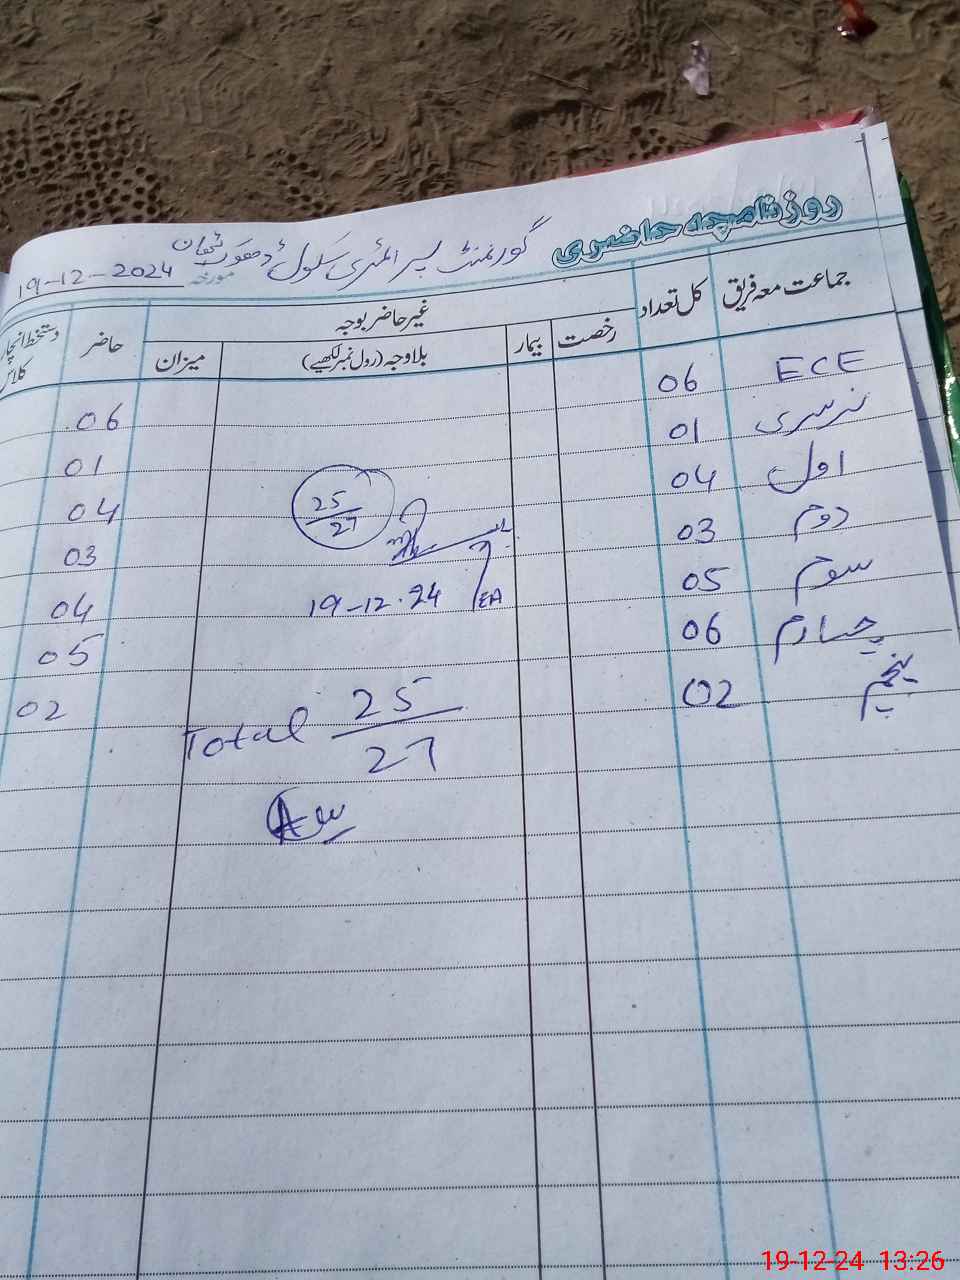 روزنامچہ حاضری گورنمنٹ پرائمری سکول مورخہ 19-12-2024
جماعت معہ فریق کل تعداد غیر حاضر بوجہ حاضر دستخط انچارج کلاس
رخصت بیمار بلاوجہ (رول نمبر لکھیے) میزان
ECE 06 06
نرسری 01 01
اول 04 04
دوم 03 03
سوم 05 04
چہارم 06 05
پنجم 02 02
25/27
19-12-24
EA
Total 25/27
19-12-24 13:26